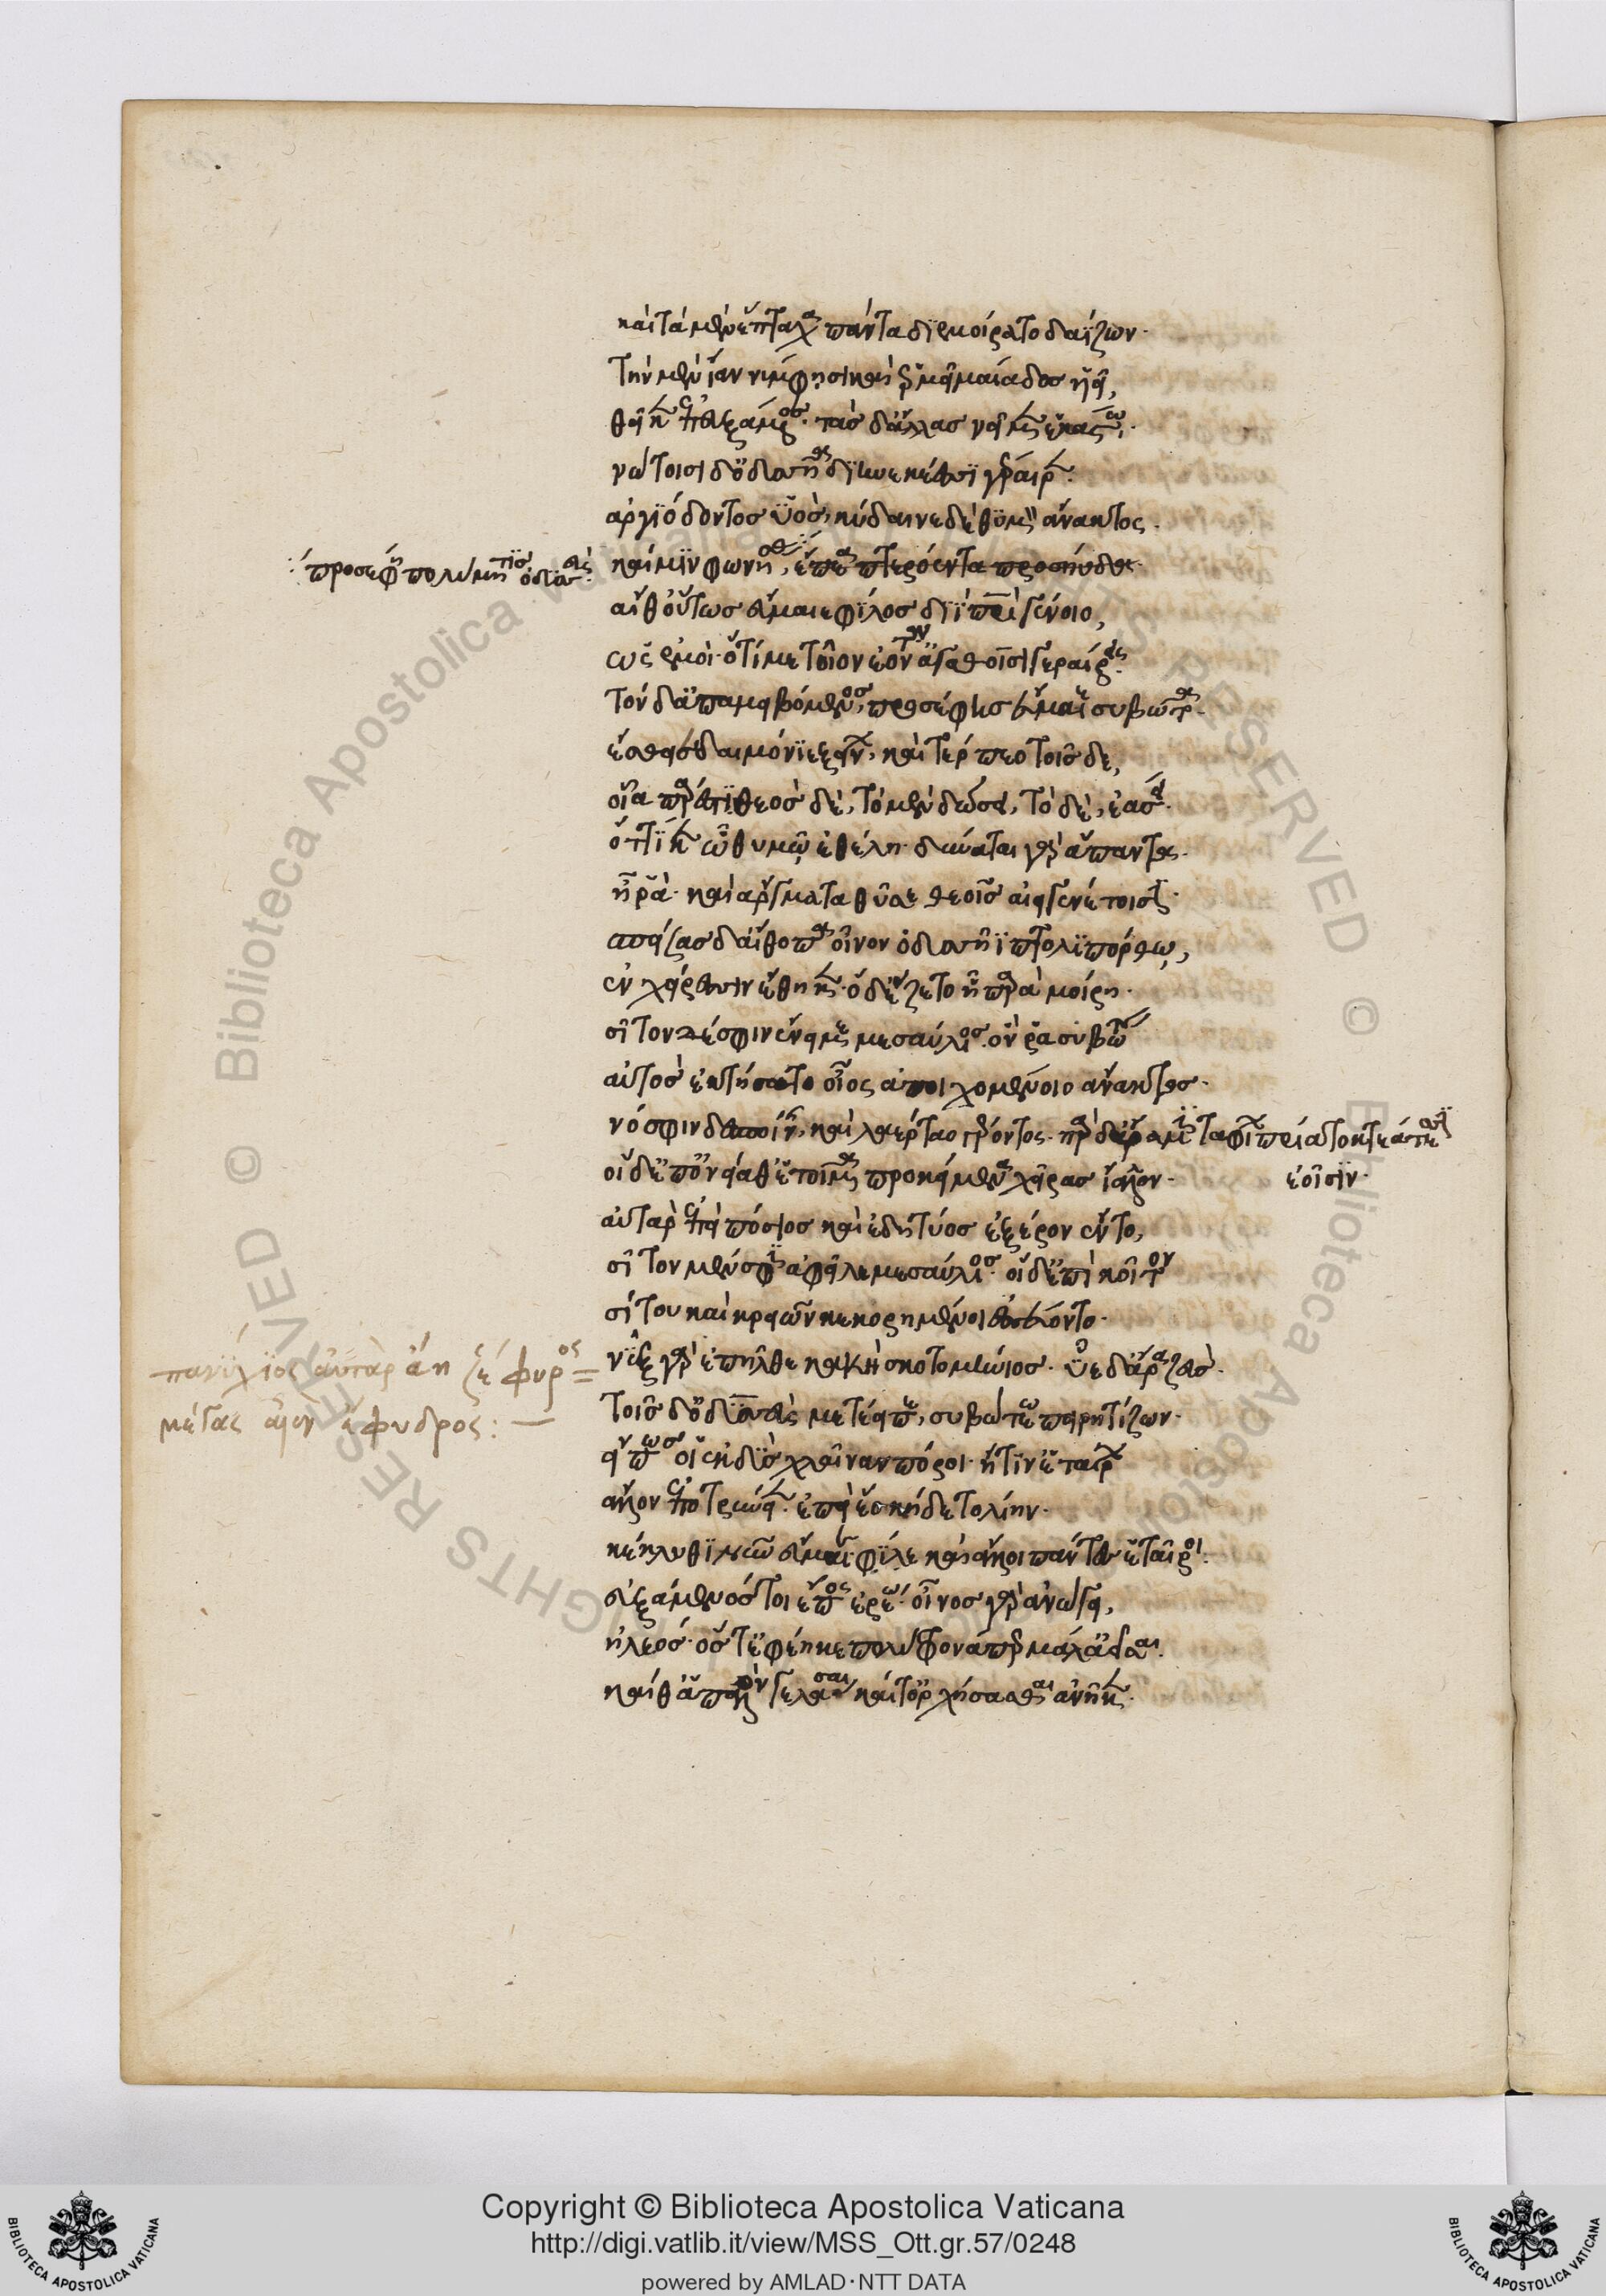 καὶ τὰ μὲν ἕπταχα πάντα διεμοίρατο δαΐζων·
τὴν μὲν ἴαν νύμφησι καὶ ἑρμῇ μαιάδος υἷει,
θῆκεν ἐπευξάμενος· τὰς δ' ἄλλας νεῖμεν ἑκάστω·
νώτοισι δ' ὀδυσῆα διηνεκέεσσι γέραιρεν·
ἀργιόδοντος ὑὸς, κύδαινε δὲ θυμὸν ἄνακτος·
προσέφη πολύμητις ὀδυσσεύς:
καί μιν φωνήσας, ἔπεα πτερόεντα προσηύδα·
αἴθ' οὕτως εὔμαιε φίλος διῒ πατρὶ γένοιο,
ὡς ἐμοί· ὅτί με τοῖον ἐόντ' ἀγαθοῖσι γεραίρεις·
τὸν δ' ἀπαμειβόμενος, προσέφης εὔμαιε συβῶτα·
ἔσθιε δαιμόνιε ξείνων, καὶ τέρπεο τοῖσδε,
οἷα πάρεστι θεὸς δὲ, τὸ μὲν δώσει, τὸ δὲ, ἐάσει·
ὅττι κεν ᾧ θυμῷ ἐθέλῃ· δύναται γὰρ ἅπαντα·
ἦ ῥα· καὶ ἄργματα θῦσε θεοῖς αἰειγενέτοισι·
σπείσας δ' αἴθοπα οἶνον ὀδυσῆϊ πτολιπόρθω,
ἐν χείρεσσιν ἔθηκεν· ὁ δ' ἕζετο ᾗ παρὰ μοίρῃ·
σῖτον δέ σφιν ἔνειμε μεσαύλιος· ὅν ῥα συβώτης
αὐτὸς ἐκτήσατο οἶος ἀποιχομένοιο ἄνακτος·
νόσφιν δεσποίνης, καὶ λαέρταο γέροντος· πὰρ δ' ἄρα μιν ταφίων πρίατο κτεάτεσσι
ἑοῖσιν·
οἱ δ' ἐπ' ὀνείαθ' ἕτοιμα προκείμενα χεῖρας ἴαλλον·
αὐτὰρ ἐπεὶ πόσιος καὶ ἐδητύος ἐξ ἔρον ἕντο,
σῖτον μέν σφιν ἀφεῖλε μεσαύλιος· οἱ δ' ἐπὶ κοῖτον
σίτου καὶ κρειῶν κεκορημένοι ἐσσεύοντο·
νὺξ γὰρ ἐπῆλθε κακὴ σκοτομήνιος· ὗε δ' ἄρα ζεὺς·
παννύχιος αὐτὰρ ἄη ζέφυρος
μέγας αἰὲν ἔφυδρος: —
τοῖς δ' ὀδυσεὺς μετέειπε, συβώτεω πειρητίζων·
εἴ πως οἱ ἐκδὺς χλαῖναν πόροι· ἤ τιν' ἑταίρων
ἄλλον ἐποτρύνειεν· ἐπεὶ ἕο κήδετο λίην·
κέκλυθι νῦν εὔμαιε φίλε καὶ ἄλλοι πάντες ἑταῖροι·
εὐξάμενός τοι ἔπος ἐρέω· οἶνος γὰρ ἀνώγει,
ἠλεός· ὅς τ' ἐφέηκε πολύφρονά περ μάλ' ἀεῖσαι·
καί θ' ἁπαλὸν γελάσαι καί τ' ὀρχήσασθαι ἀνῆκεν·
Copyright © Biblioteca Apostolica Vaticana
http://digi.vatlib.it/view/MSS_Ott.gr.57/0248
powered by AMLAD·NTT DATA